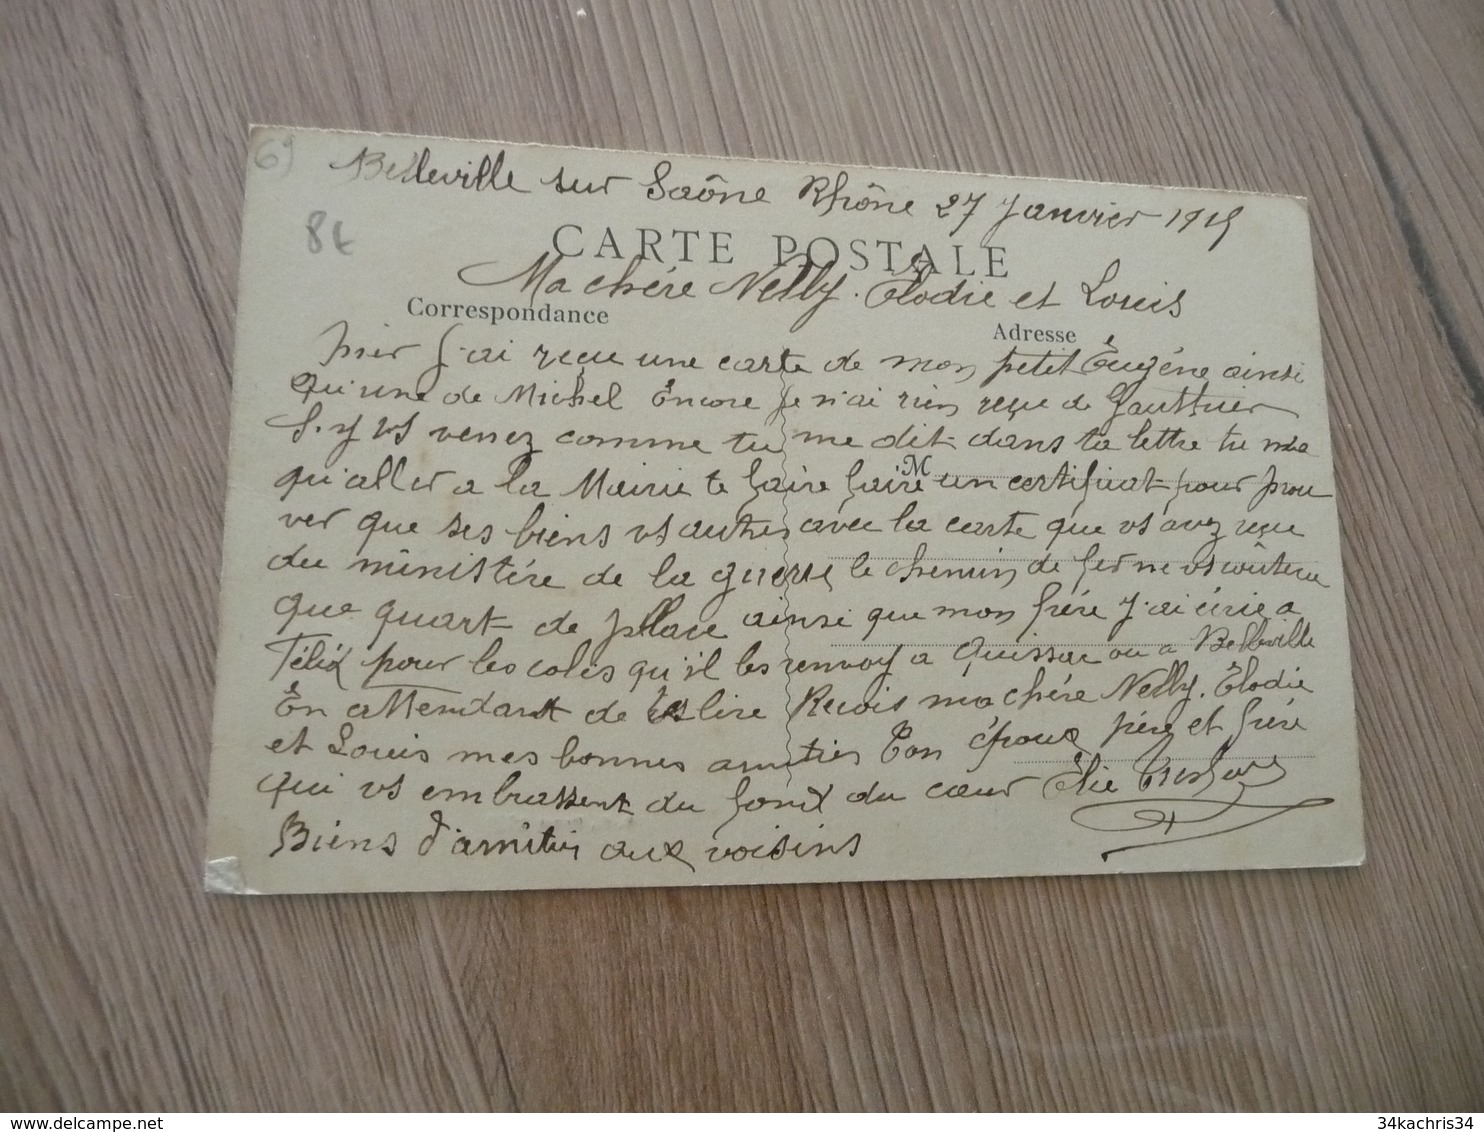 69
Belleville sur Saône Rhône 27 Janvier 1915
8€
CARTE POSTALE
Ma chére Nelly. Élodie et Louis
Correspondance
Adresse
hier J'ai reçu une carte de mon petit Eugéne ainsi
qu'une de Michel Encore Je n'ai rien reçu de Gautthier
S.y vs venez comme tu me dit dans ta lettre tu n'a
qu'aller a la Mairie te faire faire un certificat pour prou
M
ver que ses biens vs autres avec la carte que vs avez reçu
du ministére de la guerre le chemin de fer ne vs coûtera
que quart de place ainsi que mon frére J'ai écrie a
Félix pour les colis qu'il les renvoy a Quissac ou a Belleville
En attendant de vs lire Recois ma chére Nelly. Élodie
et Louis mes bonnes amitiés Ton époux pére et frére
qui vs embrassent du fond du cœur Élie
Biens d'amitiés aux voisins
34kachris34
delcampe.net
34kachris34